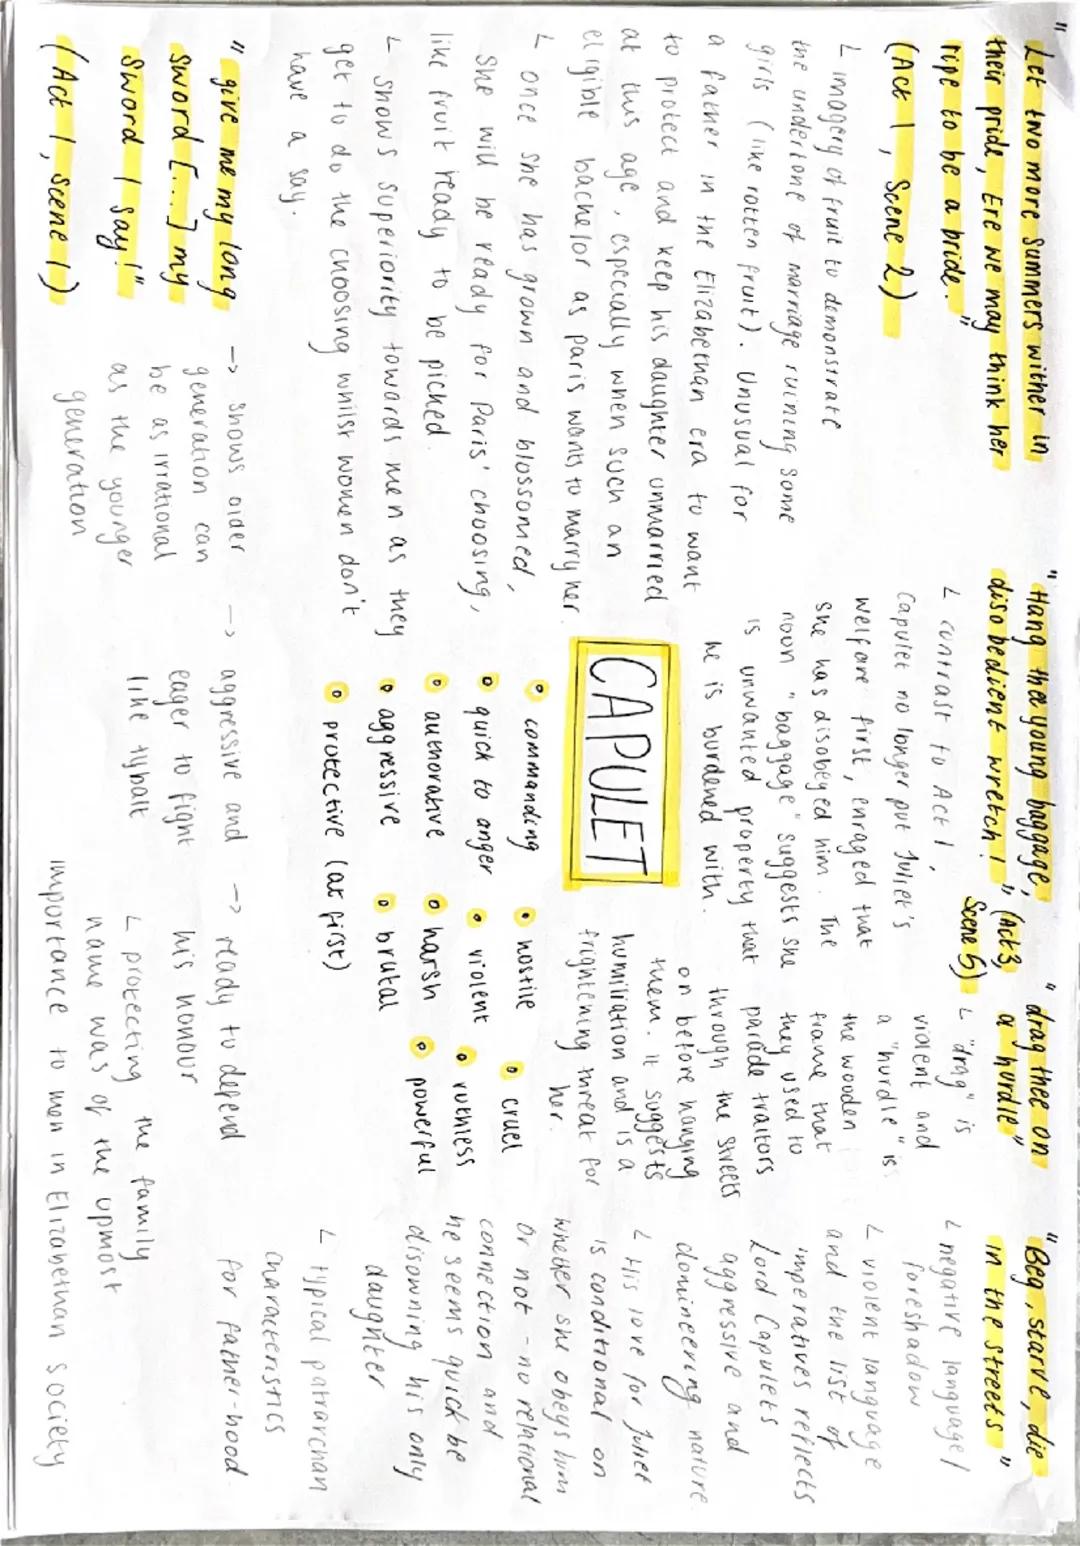 "Let two more summers wither in
their pride, Ere we may think her
ripe to be a bride."
(Act 1, Scene 2)
L imagery of fruit to demonstrate
the undertone of marriage ruining some
girls (like rotten fruit). Unusual for
a father in the Elizabethan era to want
to protect and keep his daughter unmarried
at this age, especially when such an
eligible bachelor as paris wants to marry her.
L once she has grown and blossomed,
she will be ready for Paris' choosing,
like fruit ready to be picked.
L shows superiority towards men as they
get to do the choosing whilst women don't
have a say.
"Hang thee young baggage,
disobedient wretch!" (Act 3,
Scene 5)
L contrast to Act 1,
Capulet no longer put Juliet's
welfare first, enraged that
she has disobeyed him. The
noun "baggage" suggests she
is unwanted property that
he is burdened with.
"drag thee on
a hurdle"
L "drag" is
violent and
a "hurdle" is
the wooden
frame that
they used to
parade traitors
through the streets
on before hanging
them. it suggests
humiliation and is a
frightening threat for
her.
"Beg, starve, die
in the streets"
L negative language/
foreshadow
L violent language
and the list of
imperatives reflects
Lord Capulets
aggressive and
domineering nature.
L His love for Juliet
is conditional on
whether she obeys him
or not - no relational
connection and
he seems quick be
disowning his only
daughter
L typical patrarchan
characteristics
for father-hood.
CAPULET
commanding
quick to anger
authorative
aggressive
protective (at first)
hostile
violent
harsh
brutal
cruel
ruthless
powerful
"give me my long
sword [...] my
sword I say!"
(Act 1, scene 1)
-> shows older
generation can
be as irrational
as the younger
generation
-> aggressive and
eager to fight
like tybalt
-> ready to defend
his honour
L protecting the family
name was of the upmost
importance to men in Elizabethan society